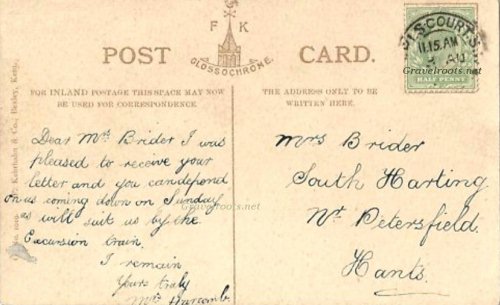 F K
POST CARD.
GLOSSOCHROME.
FOR INLAND POSTAGE THIS SPACE MAY NOW
BE USED FOR CORRESPONDENCE.
THE ADDRESS ONLY TO BE
WRITTEN HERE.
Dear Mrs Brider I was
pleased to receive your
letter and you candepend
on us coming down on Sunday
as will suit us by the
Excursion train.
I remain
Yours truly
Mrs
Mrs Brider
South Harting
Nr Petersfield.
Hants.
HALF PENNY
11.15.AM
Gravelroots.net
Gravelroots.net
& Co., Bexley, Kent.